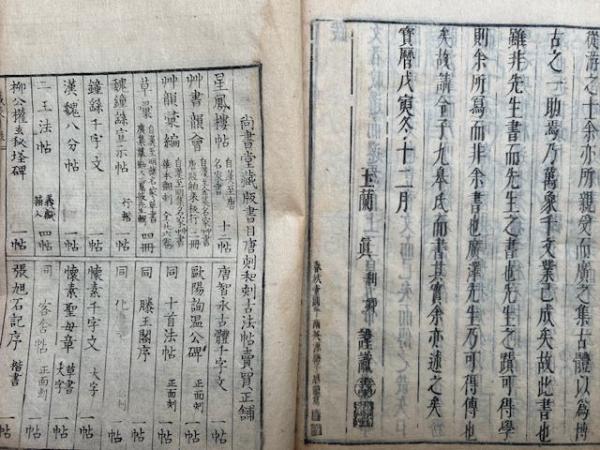 從游之士余所親受而廣之集古體以爲博
古之一助焉乃萬象千文業已成矣故此書也
雖非先生書而先生之書也先生之蹟可得學
則余所寫而非余書也廣澤先生乃可得傳也
矣故請金子九皋氏而書其實余亦述之矣
寶曆戊寅冬十二月
玉蘭一眞 謹識
尚書堂藏版書目唐刻和刻古法帖賣買正舖
星鳳樓帖 自漢至唐名家書 十二帖
艸書韻會
艸韻彙編
草彙 四冊
魏鍾繇宣示帖 一帖
鍾繇千字文 一帖
漢魏八分帖 一帖
二王法帖 一帖
柳公權玄秘塔碑 一帖
唐智永古體千字文 一帖
歐陽詢温公碑 正面刻 一帖
同 十首法帖 正面刻 一帖
同 滕王閣序 一帖
同 一帖
懷素千字文 大字 一帖
懷素聖母章 草書大字 一帖
同 正面刻 一帖
張旭石記序 楷書 一帖